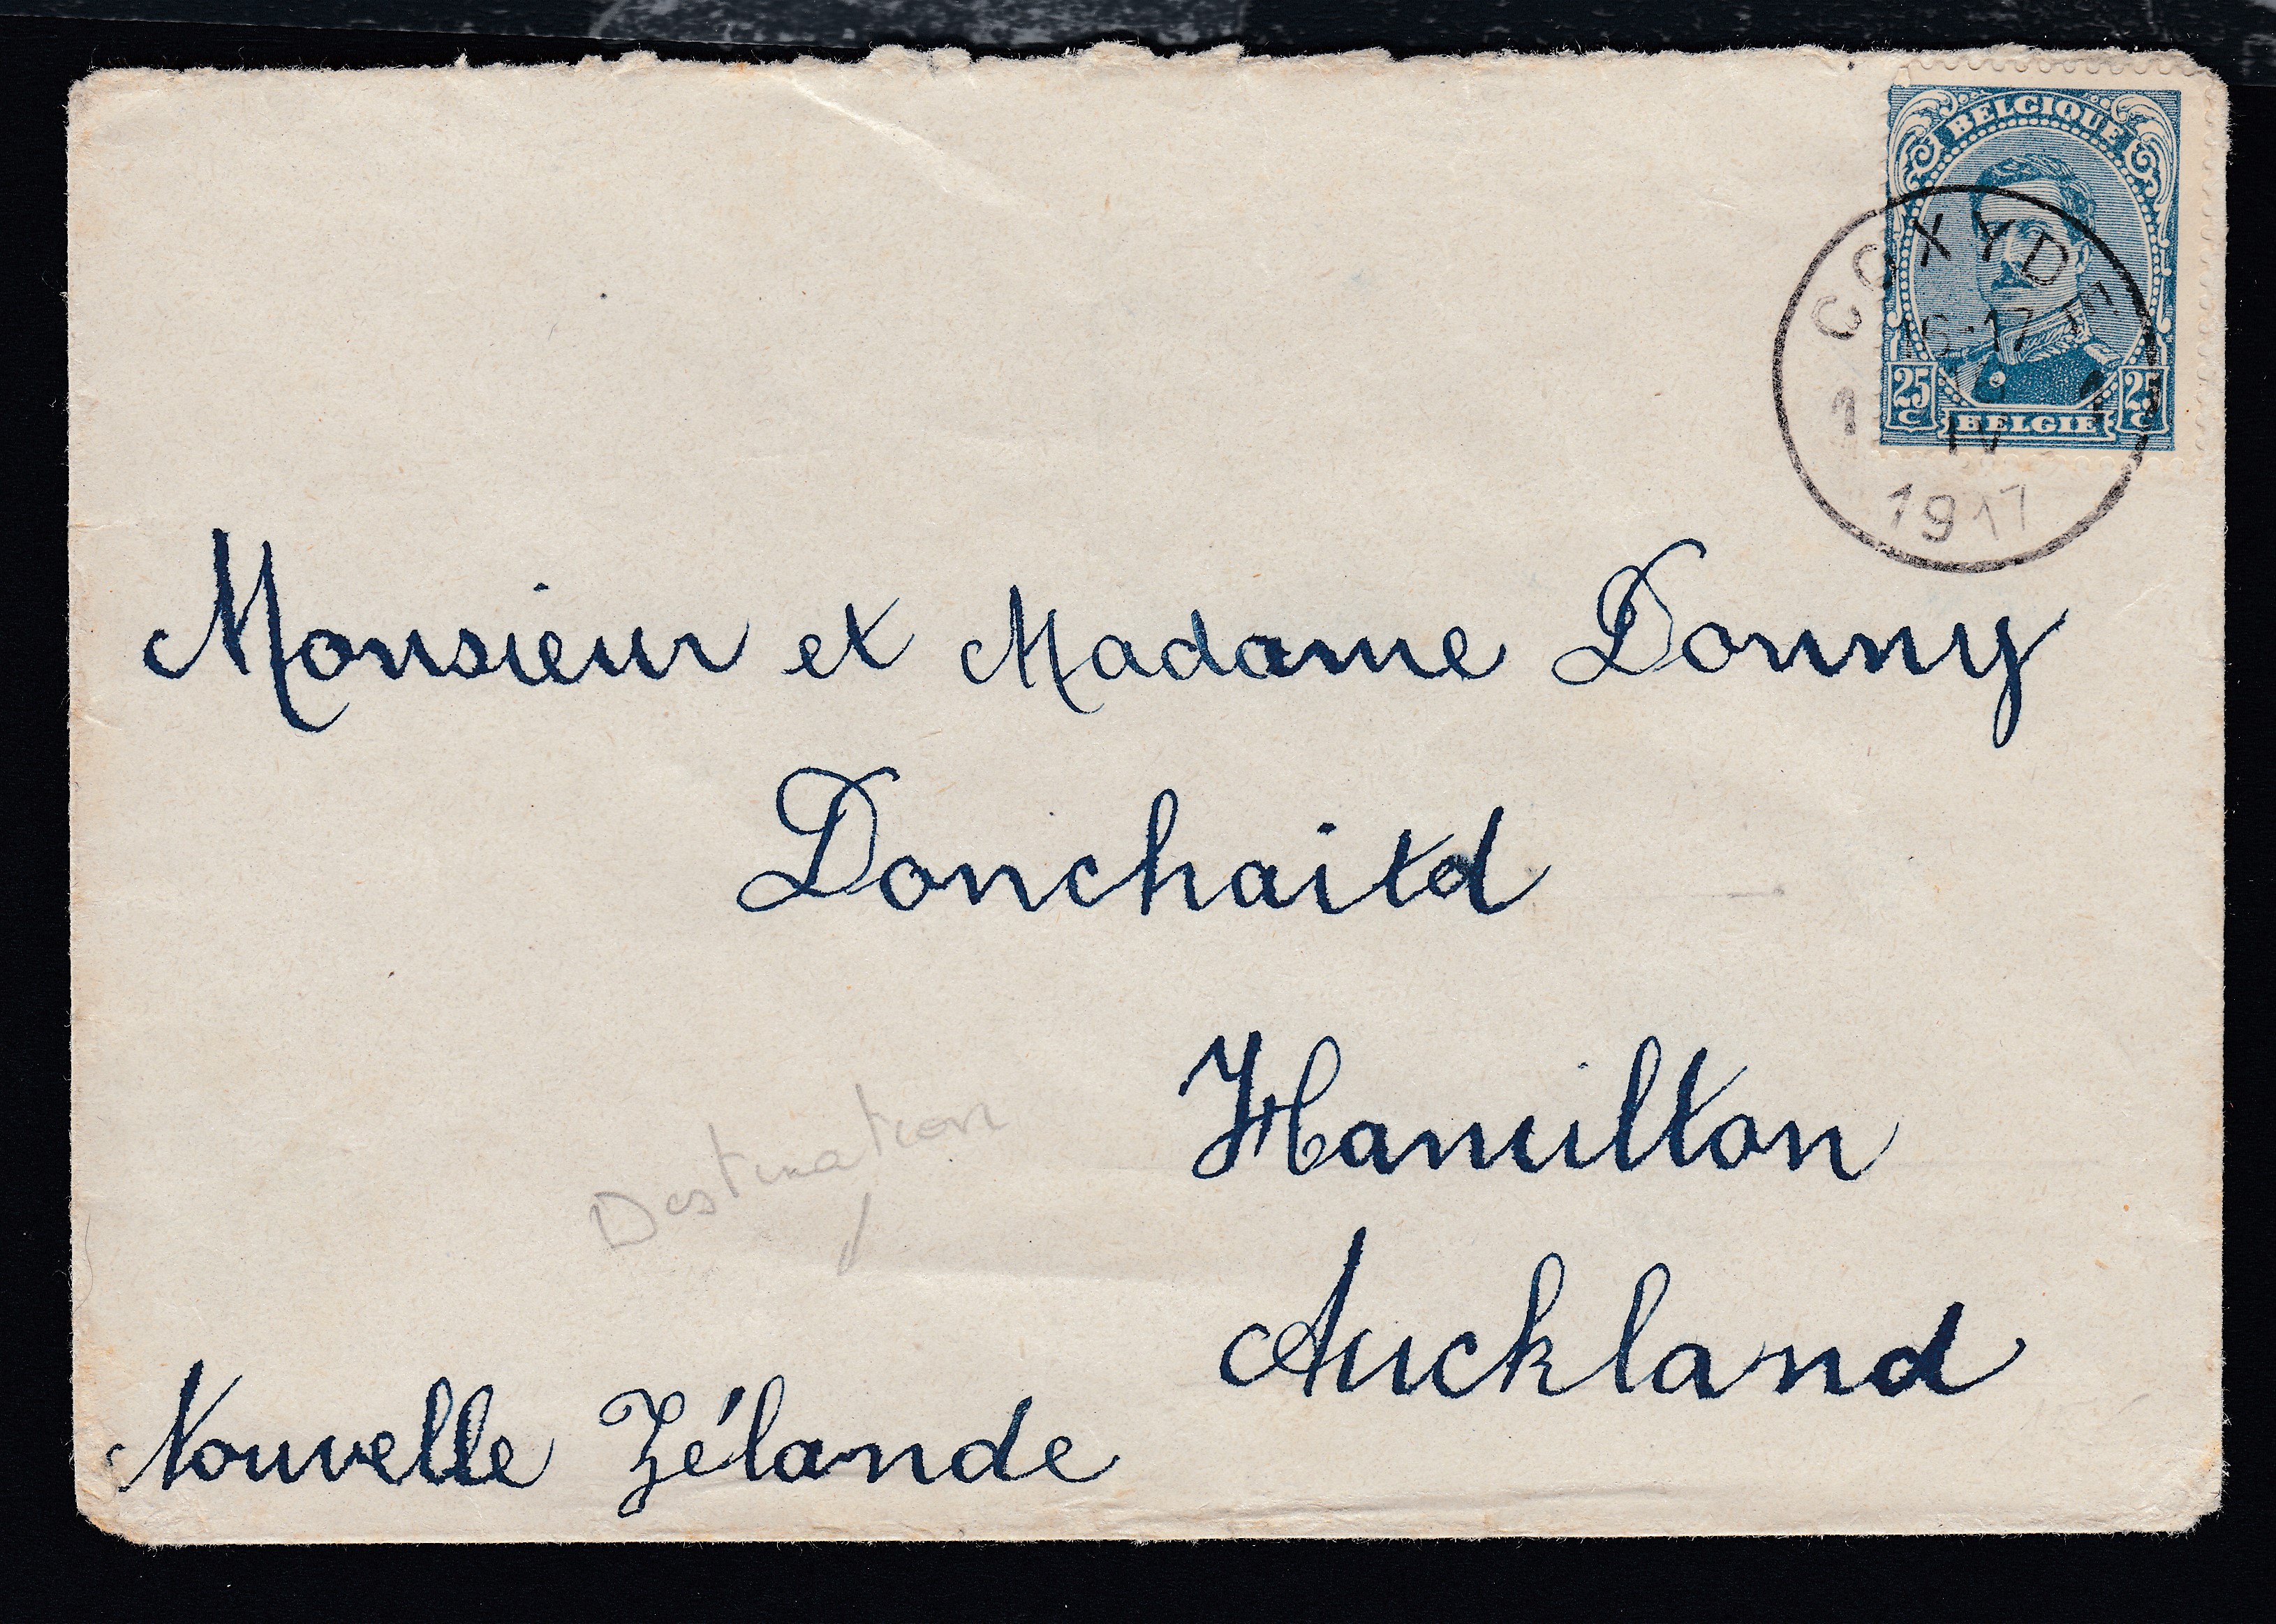 BELGIQUE
COXYDE
16-17
1 1
IV
1917
25 C 25 C
BELGIE
Monsieur et Madame Donny
Donchaitd
Hamilton
Auckland
Nouvelle Zélande
Destination